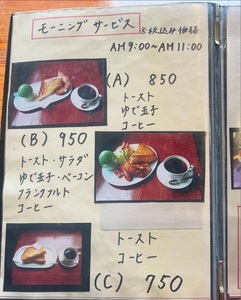 モーニング サービス
※税込み価格
AM9:00~AM11:00
(A) 850
トースト
ゆで玉子
コーヒー
(B) 950
トースト・サラダ
ゆで玉子・ベーコン
フランクフルト
コーヒー
トースト
コーヒー
(C) 750